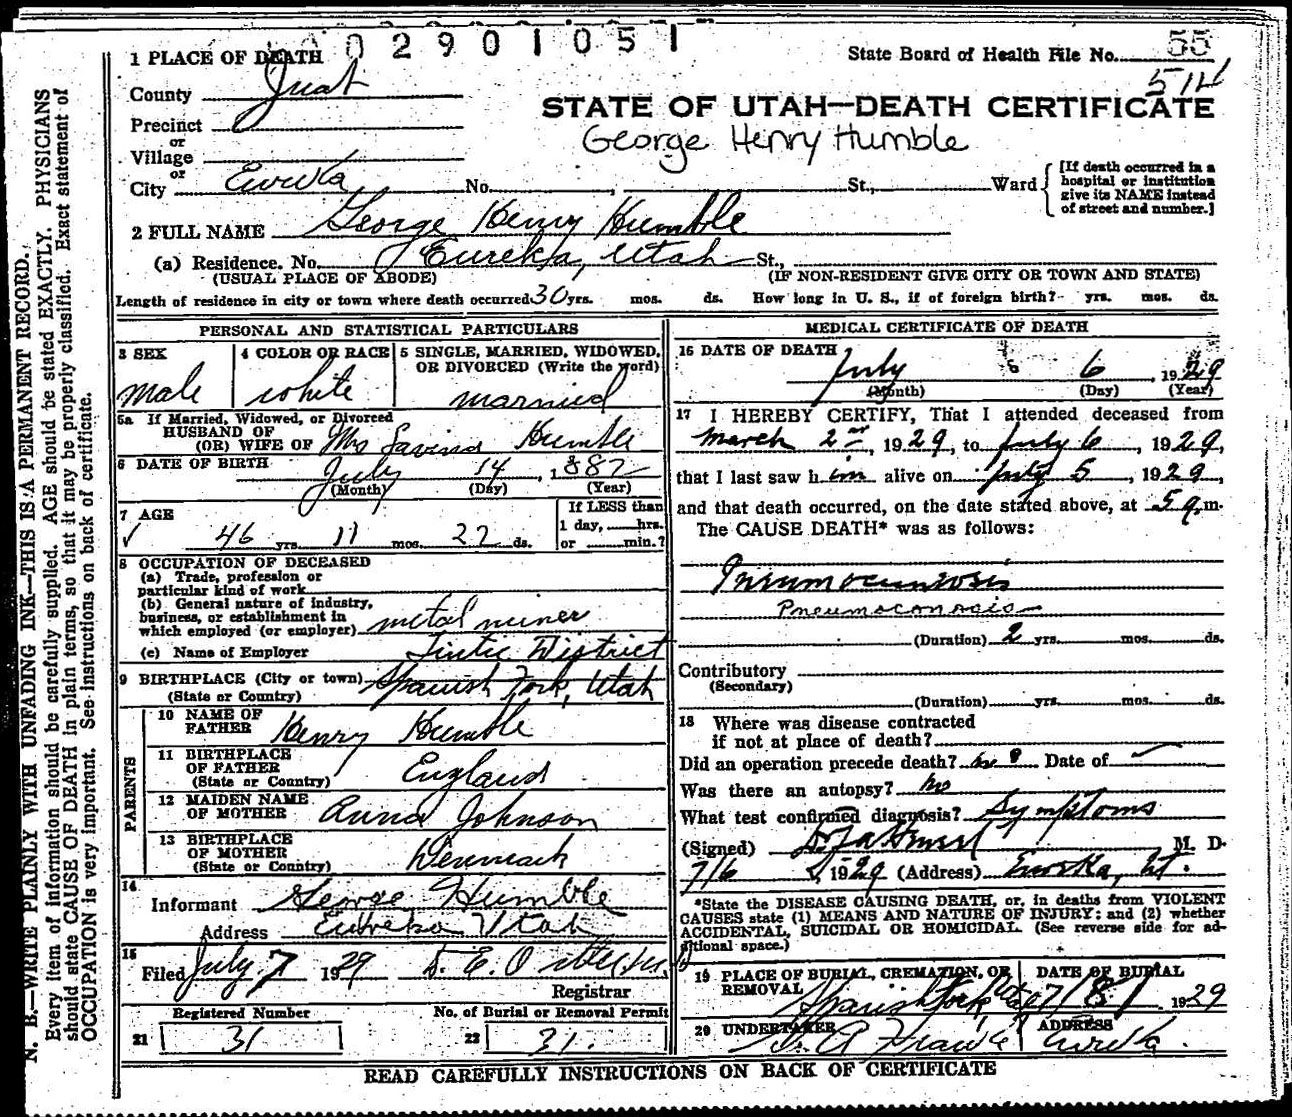 02901051
1 PLACE OF DEATH
State Board of Health File No. 55
514
County Juab
STATE OF UTAH—DEATH CERTIFICATE
Precinct
George Henry Humble
or
Village
or
City Eureka No. , St., Ward
[If death occurred in a hospital or institution give its NAME instead of street and number.]
2 FULL NAME George Henry Humble
(a) Residence. No. Eureka, Utah St.,
(USUAL PLACE OF ABODE) (IF NON-RESIDENT GIVE CITY OR TOWN AND STATE)
Length of residence in city or town where death occurred 30 yrs. mos. ds. How long in U. S., if of foreign birth? yrs. mos. ds.
PERSONAL AND STATISTICAL PARTICULARS
3 SEX 4 COLOR OR RACE 5 SINGLE, MARRIED, WIDOWED,
OR DIVORCED (Write the word)
Male white married
5a If Married, Widowed, or Divorced
HUSBAND OF
(OR) WIFE OF Mrs Lavina Humble
6 DATE OF BIRTH July 14, 1882
(Month) (Day) (Year)
7 AGE If LESS than
1 day, hrs.
46 yrs. 11 mos. 22 ds. or min.?
8 OCCUPATION OF DECEASED
(a) Trade, profession or
particular kind of work
(b) General nature of industry,
business, or establishment in
which employed (or employer) metal miner
(c) Name of Employer Tintic District
9 BIRTHPLACE (City or town) Spanish Fork, Utah
(State or Country)
PARENTS
10 NAME OF
FATHER Henry Humble
11 BIRTHPLACE
OF FATHER England
(State or Country)
12 MAIDEN NAME
OF MOTHER Anna Johnson
13 BIRTHPLACE
OF MOTHER Denmark
(State or Country)
14
Informant George Humble
Address Eureka Utah
15
Filed July 7 1929 D. E.
Registrar
Registered Number No. of Burial or Removal Permit
21 31 22 31.
MEDICAL CERTIFICATE OF DEATH
16 DATE OF DEATH
July 6, 1929
(Month) (Day) (Year)
17 I HEREBY CERTIFY, That I attended deceased from
March 2nd, 1929, to July 6, 1929,
that I last saw him alive on July 5, 1929,
and that death occurred, on the date stated above, at 5 a.m.
The CAUSE DEATH* was as follows:
Pneumoconiosis
Pneumoconocis
(Duration) 2 yrs. mos. ds.
Contributory
(Secondary)
(Duration) yrs. mos. ds.
18 Where was disease contracted
if not at place of death?
Did an operation precede death? no Date of
Was there an autopsy? no
What test confirmed diagnosis? Symptoms
(Signed) M. D.
7/6, 1929 (Address) Eureka, Ut.
*State the DISEASE CAUSING DEATH, or, in deaths from VIOLENT
CAUSES state (1) MEANS AND NATURE OF INJURY: and (2) whether
ACCIDENTAL, SUICIDAL OR HOMICIDAL. (See reverse side for ad-
ditional space.)
19 PLACE OF BURIAL, CREMATION, OR DATE OF BURIAL
REMOVAL
Spanish Fork, Utah 7/8/ 1929
20 UNDERTAKER ADDRESS
Eureka.
READ CAREFULLY INSTRUCTIONS ON BACK OF CERTIFICATE
N. B.—WRITE PLAINLY WITH UNFADING INK—THIS IS A PERMANENT RECORD.
Every item of information should be carefully supplied. AGE should be stated EXACTLY. PHYSICIANS
should state CAUSE OF DEATH in plain terms, so that it may be properly classified. Exact statement of
OCCUPATION is very important. See instructions on back of certificate.